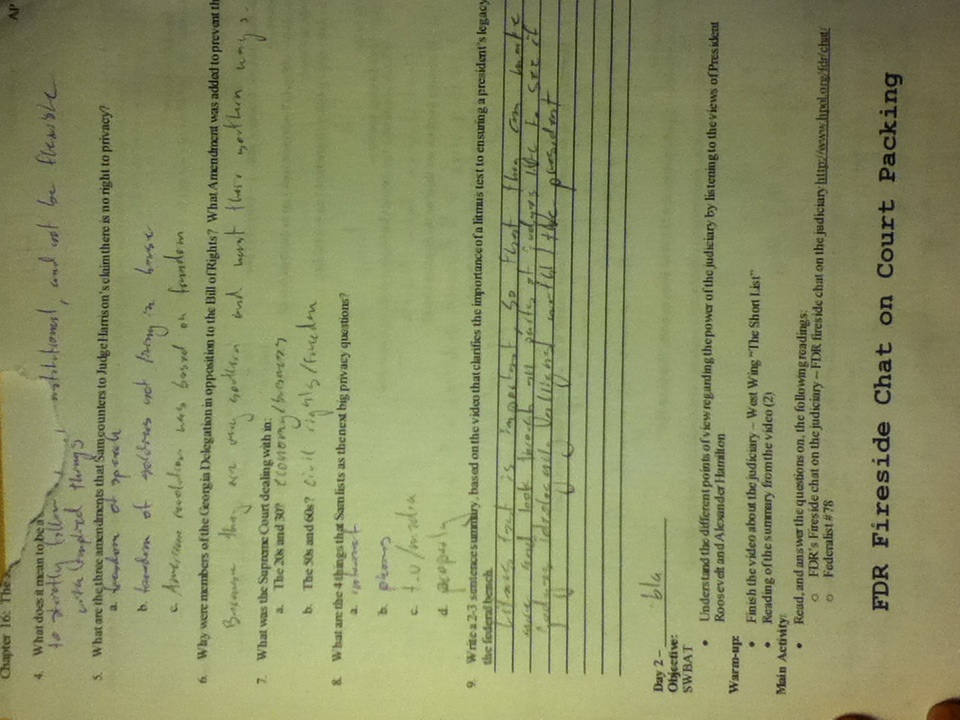 Chapter 16: The
AP
4. What does it mean to be a
to strictly follow institutional, and not be flexible
with implied things
5. What are the three amendments that Sam counters to Judge Harrison's claim there is no right to privacy?
a. freedom of speech
b. freedom of soldiers not living in house
c. American revolution was based on freedom
6. Why were members of the Georgia Delegation in opposition to the Bill of Rights? What Amendment was added to prevent th
Because they are very southern and want their southern ways.
7. What was the Supreme Court dealing with in:
a. The 20s and 30? economy/business
b. The 50s and 60s? civil rights/freedom
8. What are the 4 things that Sam lists as the next big privacy questions?
a. internet
b. phones
c. t.v/media
d. property
9. Write a 2-3 sentence summary, based on the video that clarifies the importance of a litmus test to ensuring a president's legacy
the federal bench.
Litmus test is important, so that they can make
sure and look through all parts of judges life to see if
judges ideologically the president
Day 2 – bla
Objective:
SWBAT
• Understand the different points of view regarding the power of the judiciary by listening to the views of President
Roosevelt and Alexander Hamilton
Warm-up:
• Finish the video about the judiciary – West Wing "The Short List"
• Reading of the summary from the video (2)
Main Activity:
• Read, and answer the questions on, the following readings:
o FDR's Fireside chat on the judiciary – FDR fireside chat on the judiciary http://www.hpol.org/fdr/chat/
o Federalist #78
FDR Fireside Chat on Court Packing